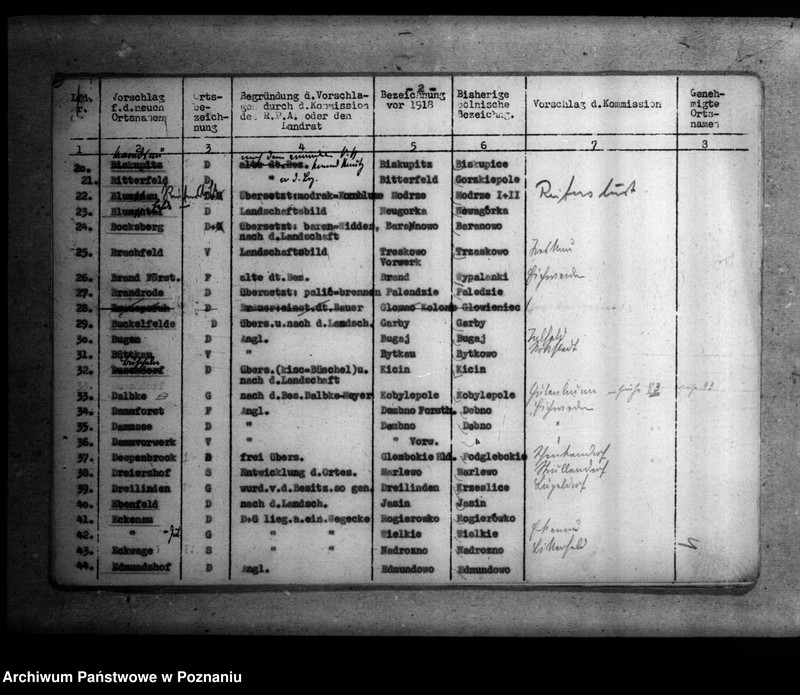 - 2 -
Vorschlag f.d.neuen Ortsnamen | Ortsbe- zeich- nung | Begründung d.Vorschla- gen durch d.Kommission der R.P.A. oder den Landrat | Bezeichnung vor 1918 | Bisherige polnische Bezeichg. | Vorschlag d.Kommission | Geneh- migte Orts- namen
1 2 3 4 5 6 7 8
20. Biskupitz D alte dt.Bez. Biskupitz Biskupice
21. Bitterfeld D " Bitterfeld Gorzkiepole
22. übersetzt:modrak=Kornblume Modrze Modrze I+II
23. D Landschaftsbild Neugorka Nowagórka
24. Bocksberg übersetzt: baran=Widder, Baranowo Baranowo
nach d.Landschaft
25. Brachfeld V Landschaftsbild Treskowo Trzaskowo
Vorwerk
26. Brand Först. F alte dt.Bez. Brand Wypalanki Eichweiden
27. Brandrode D übersetzt: palić=brennen Palendzie Palędzie
28. D Brauer=einst.dt.Bauer Glowno Kolonie Glowieniec
29. Buckelfelde D übers.u.nach d.Landsch. Garby Garby
30. Bugen D Angl. Bugaj Bugaj
31. Büttkau V " Bytkau Bytkowo
32. D übers.(kisc=Büschel)u. Kicin Kicin
nach d.Landschaft
33. Dalbke G nach d.Bes.Dalbke-Meyer Kobylepole Kobylepole
34. Dammforst F Angl. Dembno Forsth. Debno Eichweiden
35. Dammsee D " Dembno Debno "
36. Dammvorwerk V " " Vorw. "
37. Deepenbrook frei übers. Glembokie Hld. Podglebokie
38. Dreiershof S Entwicklung d.Ortes. Marlewo Marlewo
39. Dreilinden G wurd.v.d.Besitz.so gen. Dreilinden Krzeslice
40. Ebenfeld D nach d.Landsch. Jasin Jasin
41. Eckenau D D+G lieg.a.ein.Wegecke Rogierowko Rogierówko
42. " G " " Wielkie Wielkie
43. Eckwege S " " Nadrozno Nadrozno
44. Edmundshof D Angl. Edmundowo Edmundowo
Archiwum Państwowe w Poznaniu